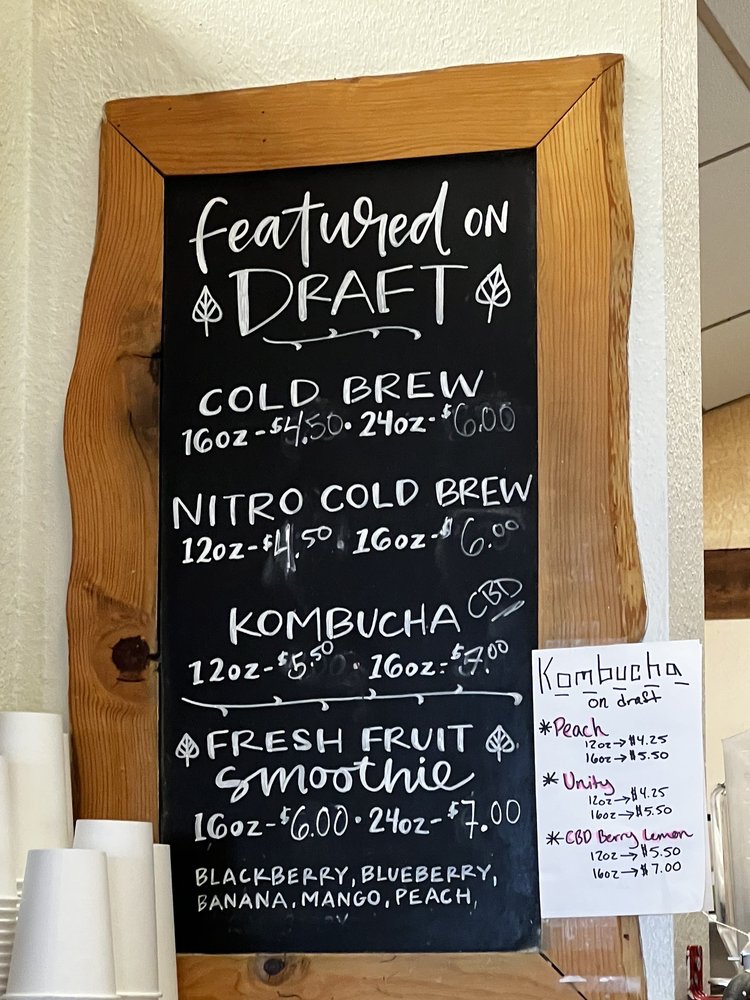 featured ON
DRAFT
COLD BREW
16oz-$4.50 · 24oz-$6.00
NITRO COLD BREW
12oz-$4.50 · 16oz-$6.00
KOMBUCHA CBD
12oz-$5.50 · 16oz-$7.00
FRESH FRUIT
smoothie
16oz-$6.00 · 24oz-$7.00
BLACKBERRY, BLUEBERRY,
BANANA, MANGO, PEACH,
Kombucha
on draft
*Peach
12oz→$4.25
16oz→$5.50
*Unity
12oz→$4.25
16oz→$5.50
*CBD Berry Lemon
12oz→$5.50
16oz→$7.00